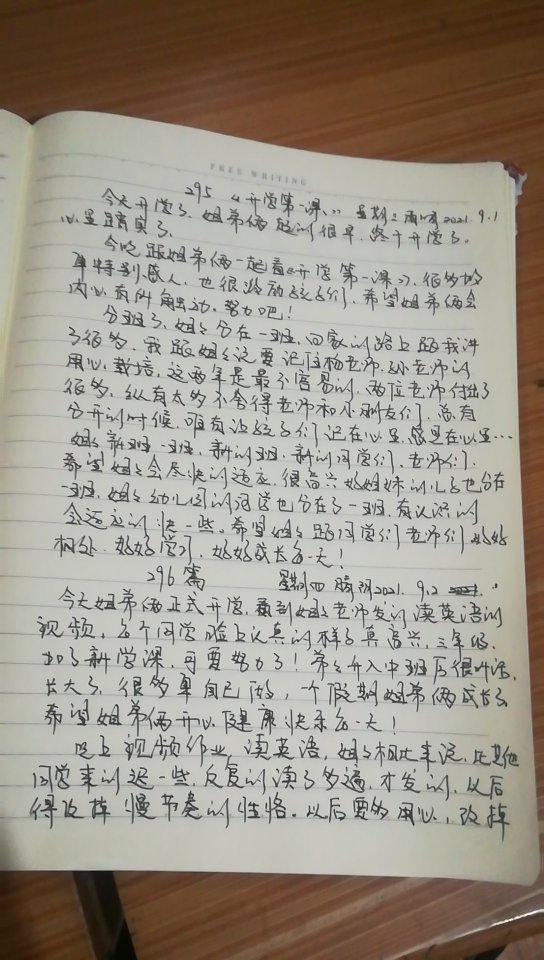 FREE WRITING
295 《开学第一课》 星期三 雨 2021.9.1
今天开学了,姐弟俩起的很早,终于开学了。
心里踏实了。
今晚跟姐弟俩一起看《开学第一课》,很多故
事特别感人,也很激励孩子们,希望姐弟俩会
内心有所触动。努力吧!
分班了,姐姐分在一班,回家的路上跟我讲
了很多,我跟姐姐说要记住杨老师、孙老师的
用心栽培,这两年是最不容易的,两位老师付出了
很多,纵有太多不舍得老师和小朋友们,总有
分开的时候,唯有让孩子们记在心里,感恩在心里…
姐姐新班一班,新的班,新的同学们,老师们,
希望姐姐会尽快的适应,很高兴好姐妹的儿子也分在
一班,姐姐幼儿园的同学也分在了一班,有认识的
会适应的快一些。希望姐姐跟同学们老师们好好
相处,好好学习,好好成长每一天!
296篇 星期四 晴 2021.9.2
今天姐弟俩正式开学,看到姐姐老师发的读英语的
视频,每个同学脸上认真的样子真高兴,三年级,
加了新学课,可要努力了!弟弟升入中班后很听话,
长大了,很多事自己做,一个假期姐弟俩成长了
希望姐弟俩开心健康快乐每一天!
晚上视频作业,读英语,姐姐相比来说,比其他
同学来的迟一些,反复的读了多遍,才发的,以后
得改掉慢节奏的性格。以后要多用心,改掉